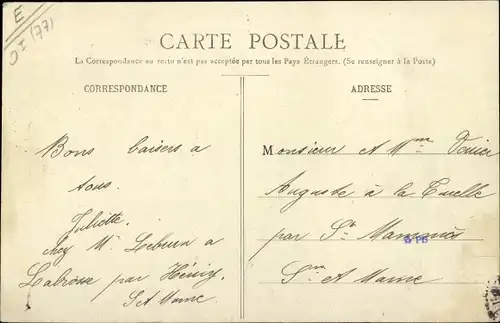 E
(77)
CARTE POSTALE
La Correspondance au recto n'est pas acceptée par tous les Pays Étrangers. (Se renseigner à la Poste)
CORRESPONDANCE
Bons baisers a
tous.
Juliette.
chez Mr Lebrun a
Labrosse par
S et Marne
ADRESSE
Monsieur et Mme
Auguste à la
par St Mammès
S. et Marne